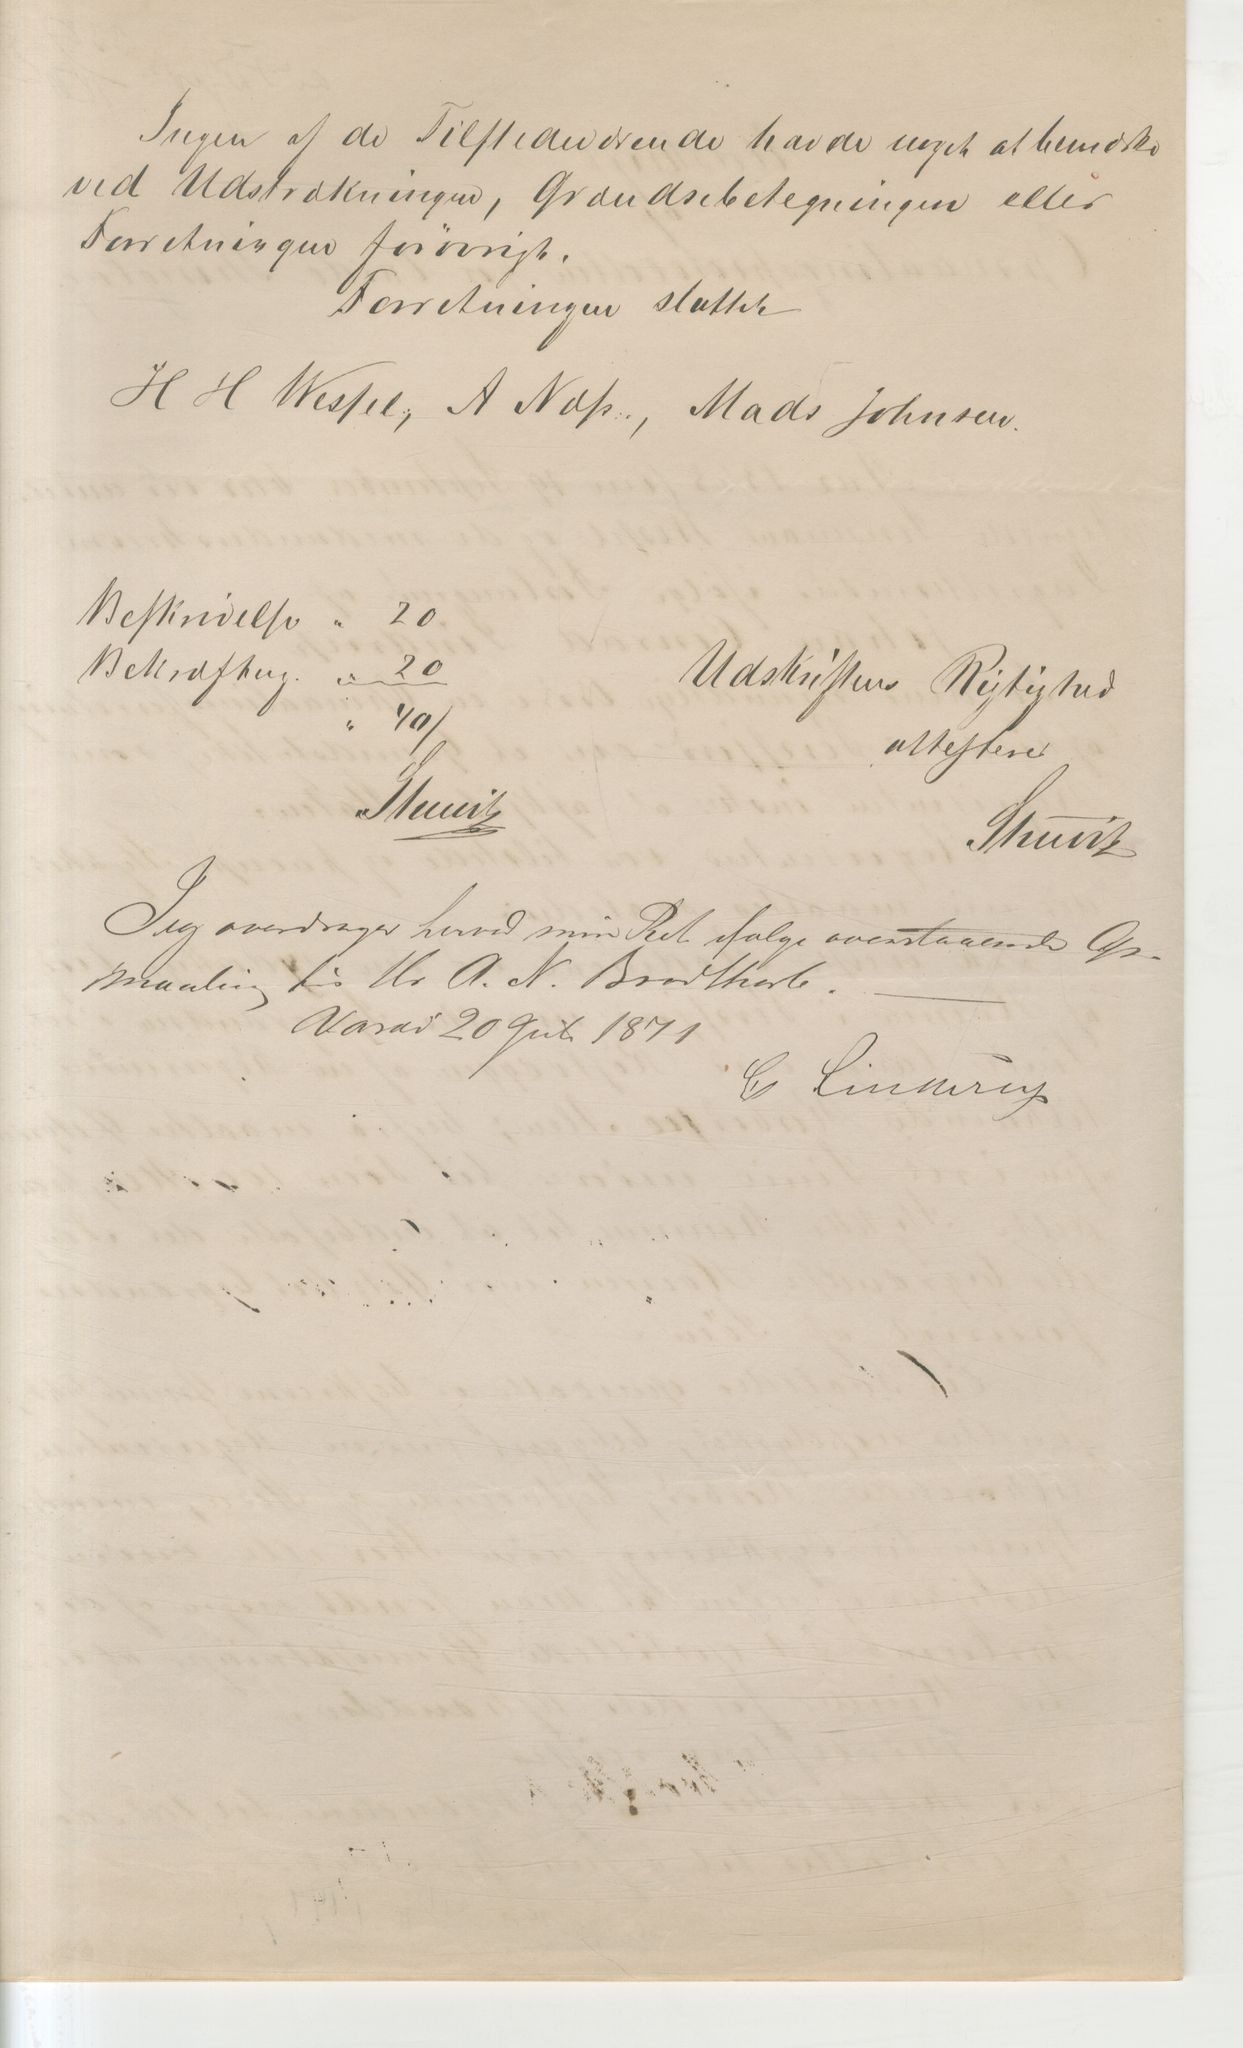 Ingen af de Tilstedeværende havde noget at bemærke
ved Udstrækningen, Grændsebetegningen eller
Forretningen forøvrigt.
Forretningen sluttet
H H Wessel, A Næss., Mads Johnsen.
Beskrivelse " 20
Bekræftug. " 20
" 40/
Udskriftens Rigtighed
attesterer
Stuwitz
Stuwitz
Jeg overdrager herved min Ret ifølge ovenstaaende Op-
maaling til Hr A. N. Brodtkorb.
Vardö 20 1871
C Lindtrup